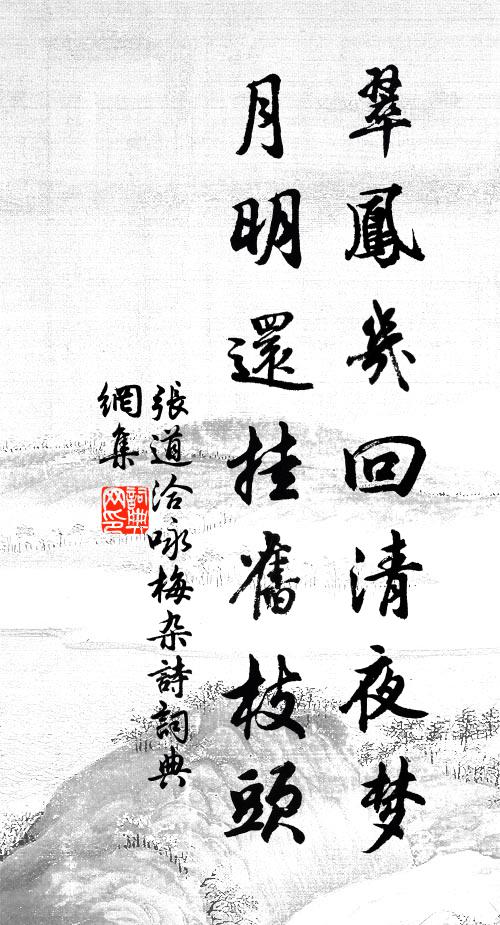 翠鳳幾回清夜梦
月明還挂舊枝頭
張道洽咏梅杂詩詞典
網集
詞典
网印